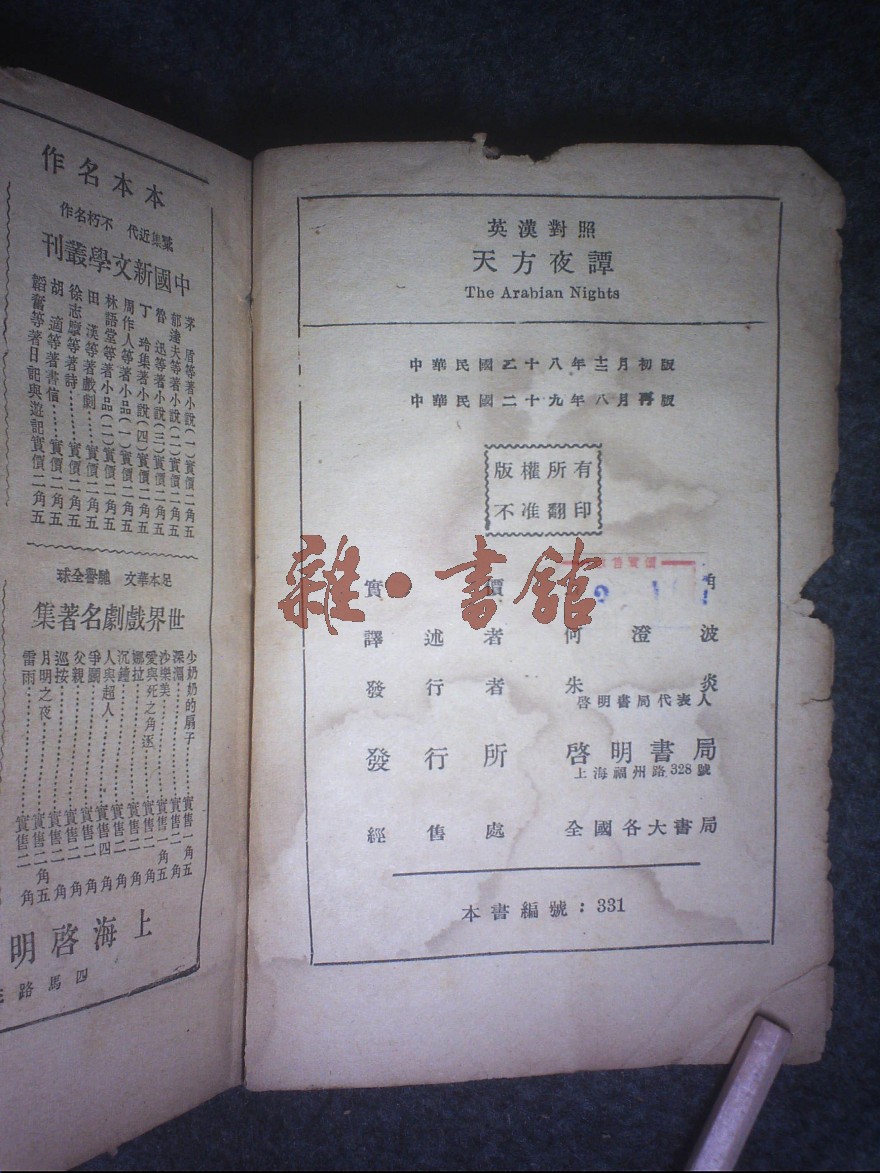 英漢對照
天方夜譚
The Arabian Nights
中華民國二十八年十二月初版
中華民國二十九年八月再版
版權所有
不准翻印
實價
譯述者 何澄波
發行者 朱炎
啓明書局代表人
發行所 啓明書局
上海福州路328號
經售處 全國各大書局
本書編號：331
雜·書館
本本名作
彙集近代 不朽名作
中國新文學叢刊
茅盾等著小說(一)實價二角五
郁達夫等著小說(二)實價二角五
魯迅等著小說(三)實價二角五
丁玲集著小說(四)實價二角五
周作人等著小品(一)實價二角五
林語堂等著小品(二)實價二角五
田漢等著戲劇……實價二角五
徐志摩等著詩……實價二角五
胡適等著書信……實價二角五
韜奮等著日記與遊記實價二角五
足本華文 馳譽全球
世界戲劇名著集
少奶奶的扇子……實售一角五
深淵……實售一角
沙樂美……實售一角五
愛與死之角逐……實售二角
娜拉……實售二角
沉鐘……實售二角
人與超人……實售四角
爭鬬……實售二角
父親……實售一角
巡按……實售二角
月明之夜……實售一角五
雷雨……實售二角
上海啓明
四馬路